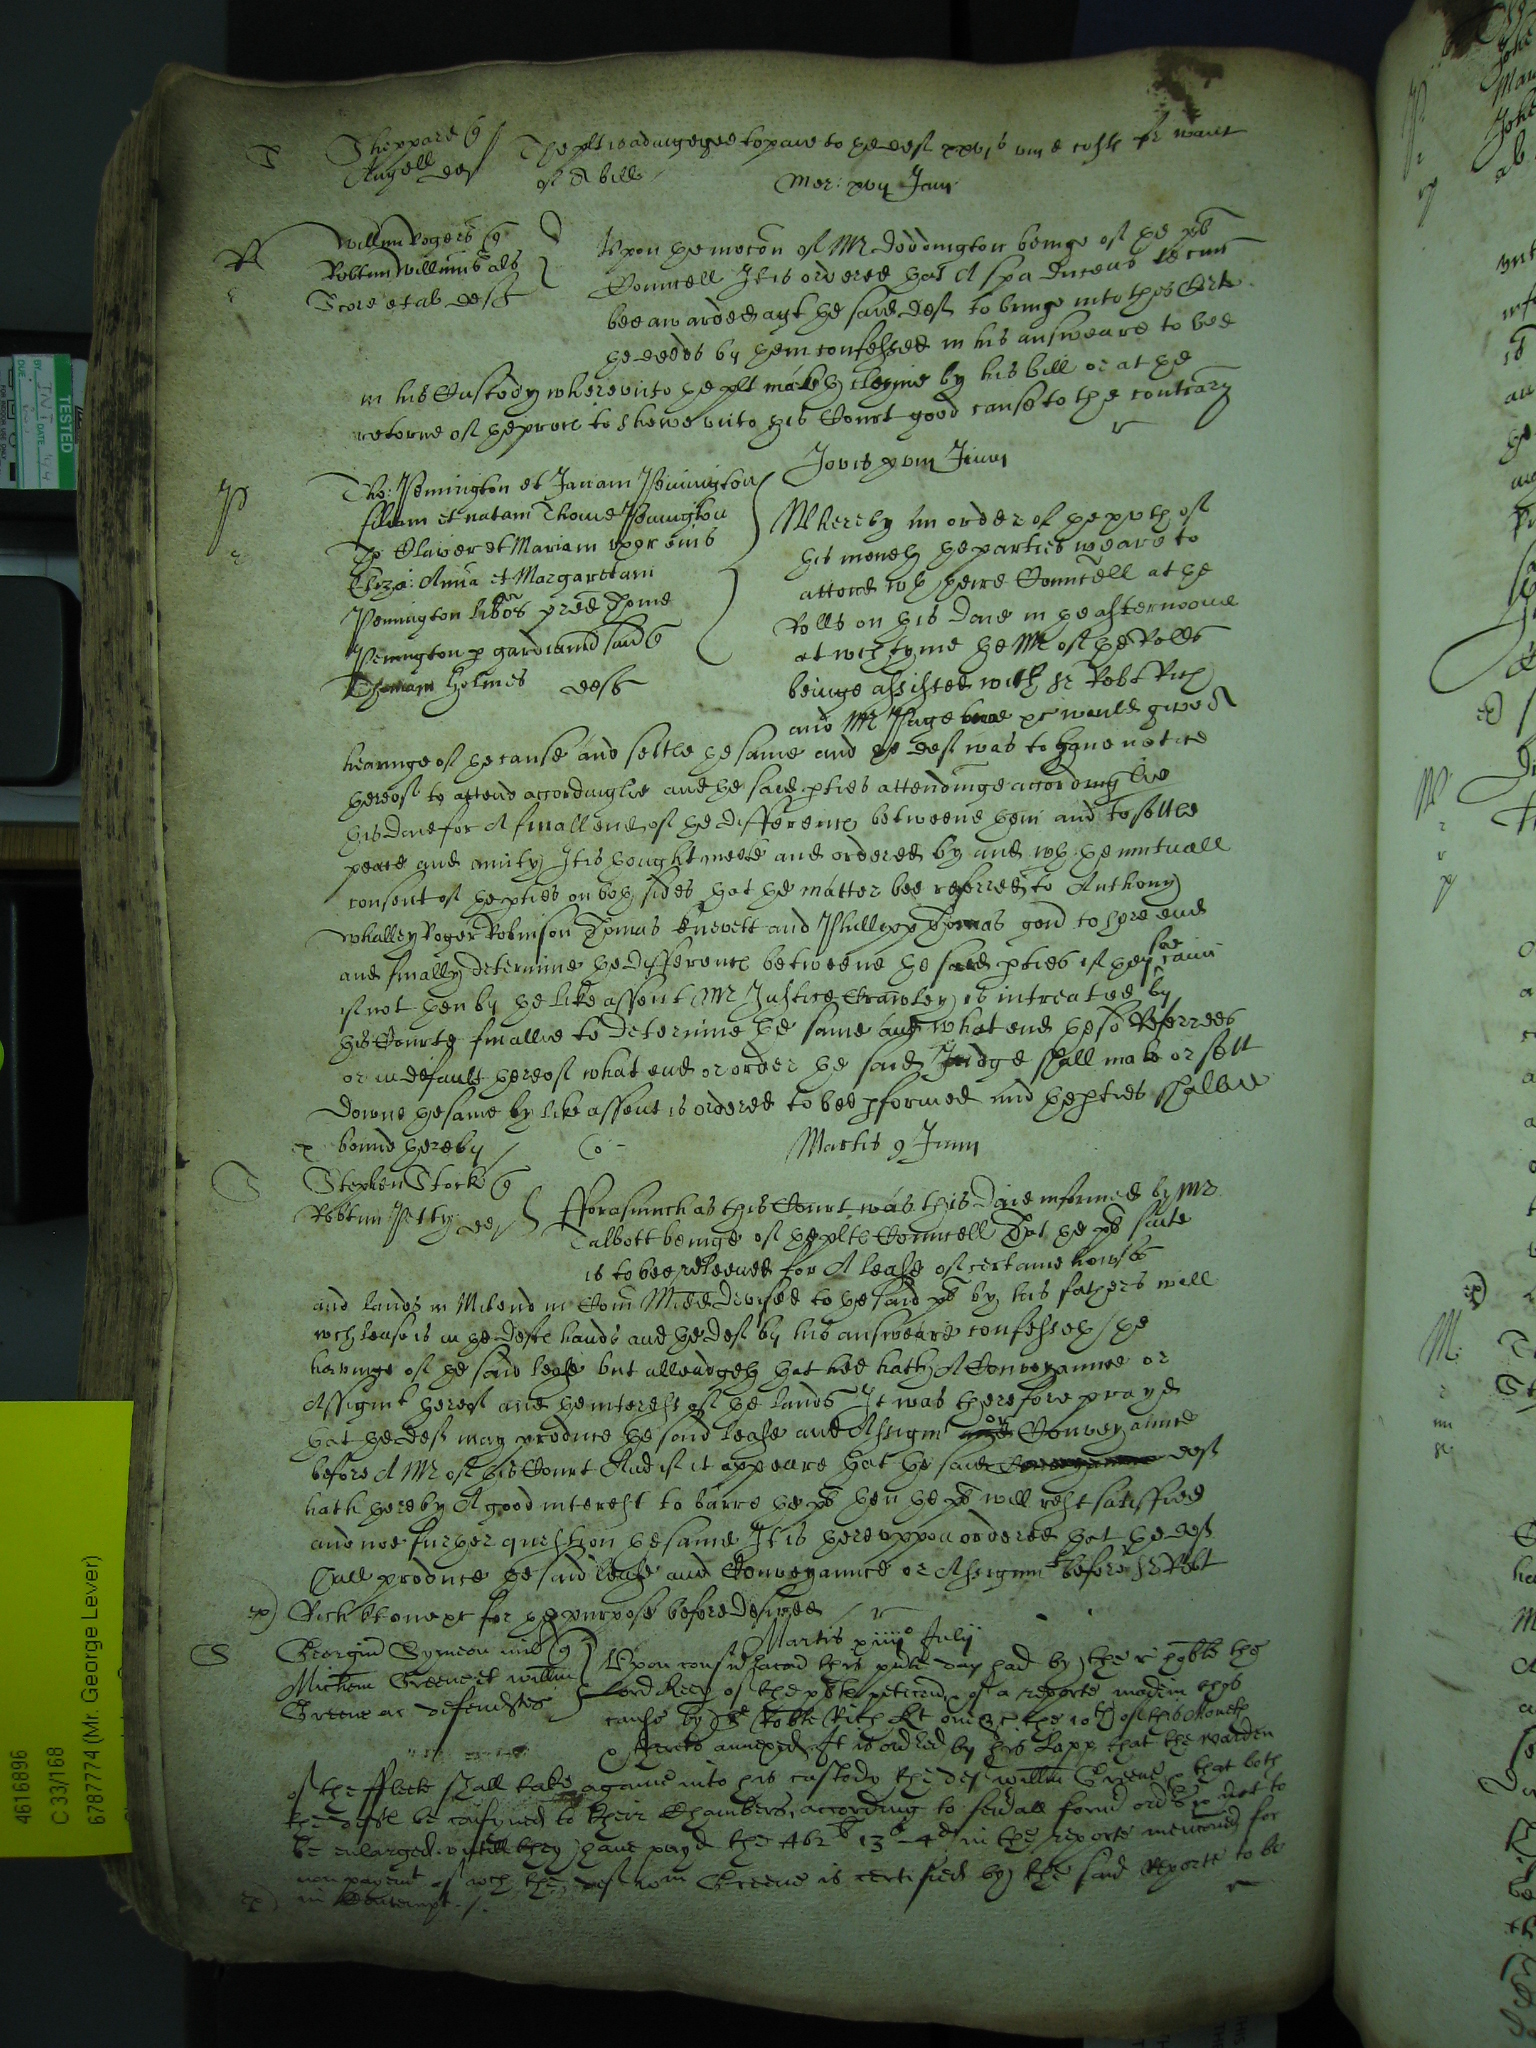 S Sheppare q
Angell def
The plt is adiugdged to paie to the def xxvis viijd costs for want
of A bill
Mer: xvij Junij
R Willim Rogers q
Robtum Willims als
Score et al defts
Upon the mocon of Mr Doddington beinge of the plts
Councell It is ordered that A spa duceus tecum
bee awarded agt the said deft to bringe into this Corte
the deeds by them confessed in his answeare to bee
in his Custody whereunto the plt maketh clayme by his bill or at the
retorne of the proces to shewe unto this Court good cause to the contrary
Jovis xviij Junij
P Tho: Penington et Janam Penington
filiam et natam Thome Penington
Tho Claver et Mariam uxor eius
Eliza: Anna et Margaretam
Penington liberos pred Thome
Penington p gardianu suu q
Thomam Holmes defts
Whereby an order of the xvth of
this moneth the parties weare to
attend with theire Councell at the
Rolls on this daie in the afternoone
at wch tyme the Mr of the Rolls
beinge assisted with Sr Robt Rich
and Mr Page would give A
hearinge of the cause and settle the same and the deft was to have notice
thereof to attend accordinglie and the said pties attendinge accordinglie
this daie for A finall end of the difference betweene them and to settle
peace and amity It is thought meete and ordered by and wth the mutuall
consent of the pties on both sides that the matter bee referred to Anthony
Whalley Roger Robinson Thomas Knevett and Phillipp Thomas gent to heare end
and finally determine the difference betweene the said pties if they soe cann
if not then by the like assent Mr Justice Crawley is intreated by
this Courte finallie to determine the same and what end the so Referrees
or in default thereof what end or order the said Judge shall make or sett
downe the same by like assent is ordered to bee pformed and the pties shalbee
ex bound thereby
Co
Martis 9 Junij
S Stephen Stock q
Robtum Petty def
Fforasmuch as this Court was this daie informed by Mr
Talbott beinge of the plts Councell That the plts suite
is to bee releeved for A lease of certaine howses
and lands in Milend in Com Midd devised to the said plt by his fathers will
wch lease is in the defts hands and the deft by his answeare confesseth the
havinge of the said lease but alleadgeth that hee hath A Conveyannce or
Assignmt thereof and the interest of the lands It was therefore prayd
that the deft may produce the said lease and Assignmt or Conveyannce
before A Mr of this Court And if it appeare that the said deft
hath thereby A good interest to barre the plt then the plt will rest satisfied
and noe further question the same It is thereuppon ordered that the deft
shall produce the said lease and Conveyannce or Assignmt before Sr Robt
ex Rich kt one &c for the purpose before desired
Martis xiiijo Julij
S Georgiu Symeon mil q
Michem Greene et willm
Greene ar defendtes
Upon consideracon this pnte day had by the r: hoble the
Lord Keep of the plts peticon & of a reporte made in this
cause by Sr Robte Rich Kt one &c the 10th of this Moneth
hereto annexed It is ordred by his Lopp that the warden
of the ffleete shall take againe into his custody the def willm Greene & that both
the defts be confyned to their Chambers, according to sevall former ordrs & not to
be enlarged untill they have payd the 462li 13s-4d in the reporte mencioned for
non paiemt of wch the def wm Greene is certified by the said Reporte to be
ex in Contempt
TESTED
4616896
C 33/168
67877774 (Mr. George Lever)